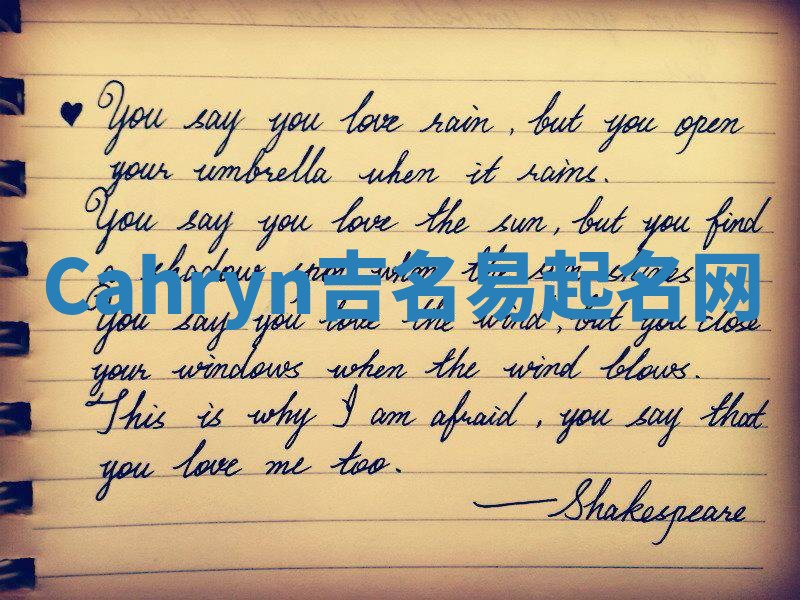 ♥ You say you love rain, but you open
your umbrella when it rains.
You say you love the sun, but you find
a shadow spot when the sun shines
Cahryn吉名易起名网
You say you love the wind, but you close
your windows when the wind blows.
This is why I am afraid, you say that
you love me too.
—Shakespeare